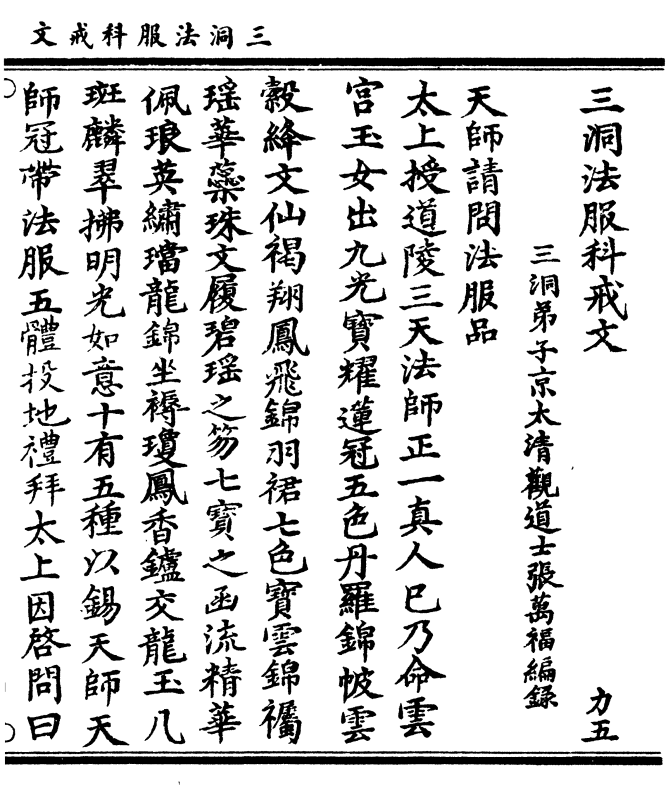 三洞法服科戒文
三洞法服科戒文
力五
三洞弟子京太清觀道士張萬福編録
天師請問法服品
太上授道陵三天法師正一真人已乃命雲
宮玉女出九光寶耀蓮冠五色丹羅錦帔雲
縠絳文仙褐翔鳳飛錦羽裙七色寶雲錦襡
瑶華藥珠文履碧瑶之笏七寶之函流精華
佩琅英繡璫龍錦坐褥瓊鳳香鑪交龍玉八
斑麟翠拂明光如意十有五種以錫天師天
師冠帶法服五體投地禮拜太上因啓問曰